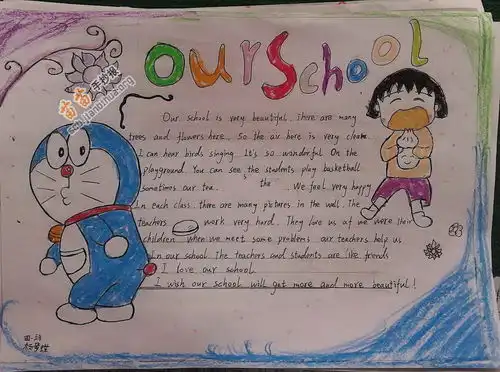 our School
Our school is very beautiful. There are many
trees and flowers here. So the air here is very clean.
I can hear birds singing. It's so wonderful. On the
playground. You can see the students play basketball
sometimes. our tea s the . We feel very happy
In each class. there are many pictures in the wall. The
teachers work very hard. They love us as we were their
children when we meet some problems our teachers help us
In our school. the teachers and students are like friends
I love our school.
I wish our school will get more and more beautiful!